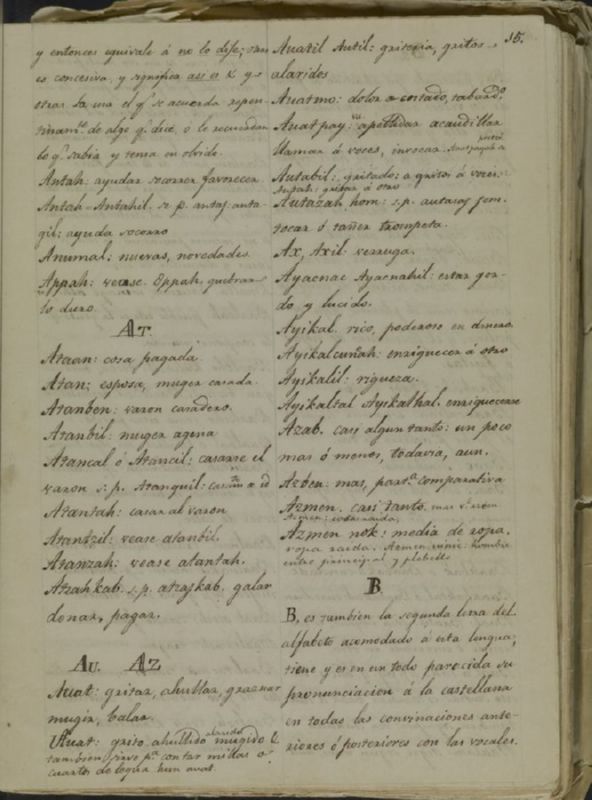 15.
y entonces equivale á no lo dije; otras
es concesiva, y significa asi es &. y
otras la una el q.e se acuerda repen-
tinam.te de algo q.e dice, ó le recuerdan
lo q.e sabia y tenia en olvido.
Antah: ayudar socorrer favorecer
Antah Antahil. s. p. antaj anta-
gil: ayuda socorro
Anumal: nuevas, novedades.
Appah: vease Eppah, quebran-
to duro.
AT.
Ataan: cosa pagada
Atan: esposa, muger casada.
Atanben: varon casadero.
Atanbil: muger agena
Atancal ó Atancil: casarse el
varon s. p. Atanquil:
Atantah: casar al varon
Atantzil: vease atanbil.
Atanzah: vease atantah.
Atzahkab. s. p. atzajkab. galar
donar, pagar.
AU. AZ
Auat: gritar, ahullar, graznar
mugir, balar.
Auat: grito ahullido alarido mugido &.
tambien sirve p.a contar millas ó
cuartos de legua hun avat.
Auatil Autil: griteria, gritos,
alaridos
Auatmo: dolor a costado, tabard.o
Auatpay: apellidar acaudillar
llamar á voces, invocar.
Autabil: gritado: a gritos á voces:
gritar á otro
Autazah hom: s. p. autasaj jom
tocar ó tañer trompeta.
Ax, Axil. verruga.
Ayacnac Ayacnahil: estar gor-
do y lucido.
Ayikal. rico, poderoso en dinero.
Ayikalcunah: enriquecer á otro
Ayikalil: riqueza.
Ayikaltal Ayikalhal. enriquecerse
Azab. casi algun tanto: un poco
mas ó menos, todavia, aun.
Azben: mas, part.a comparativa
Azmen. casi tanto.
Azmen:
Azmen nok: media de ropa.
ropa raida. Azmen vinic: hombre
entre principal y plebello
B
B, es tambien la segunda letra del
alfabeto acomodado á esta lengua,
tiene y es en un todo parecida su
pronunciacion á la castellana
en todas las convinaciones ante-
riores ó posteriores con las vocales.